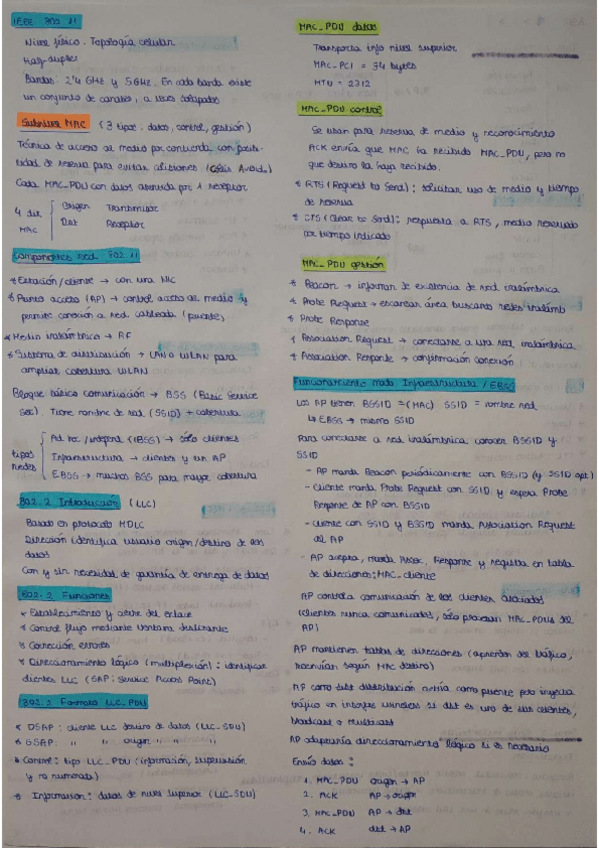 IEEE 802.11
Nivel físico. Topología celular
Half-duplex
Bandas: 2'4 GHz y 5GHz. En cada banda existe
un conjunto de canales, a veces solapados
Subnivel MAC (3 tipos: datos, control, gestión)
Técnica de acceso al medio por contienda con posibi-
lidad de reserva para evitar colisiones
Cada MAC_PDU con datos asentida por 1 receptor
4 dir MAC { Origen Transmisor
Dst Receptor
Componentes red 802.11
* Estación/cliente → con una NIC
* Punto acceso (AP) → control acceso al medio y
permite conexión a red cableada (puente)
* Medio inalámbrico → RF
* Sistema de distribución → LAN o WLAN para
ampliar cobertura WLAN
Bloque básico comunicación → BSS (Basic Service
Set). Tiene nombre de red (SSID) + cobertura
tipos redes { Ad hoc/independ (IBSS) → sólo clientes
Infraestructura → clientes y un AP
EBSS → muchos BSS para mayor cobertura
802.2 Introducción (LLC)
Basado en protocolo HDLC
Dirección identifica usuario origen/destino de los
datos
Con y sin necesidad de garantía de entrega de datos
802.2 Funciones
* Establecimiento y cierre del enlace
* Control flujo mediante ventana deslizante
* Corrección errores
* Direccionamiento lógico (multiplexión): identificar
clientes LLC (SAP: Service Access Point)
802.2 Formato LLC_PDU
* DSAP: cliente LLC destino de datos (LLC_SDU)
* SSAP: " " origen " "
* Control: tipo LLC_PDU (información, supervisión
y no numerada)
* Information: datos de nivel superior (LLC_SDU)
MAC_PDU datos
Transporta info nivel superior
MAC_PCI = 34 bytes
MTU = 2312
MAC_PDU control
Se usan para reserva de medio y reconocimiento
ACK envía que MAC ha recibido MAC_PDU, pero no
que destino la haya recibido.
* RTS (Request to Send): solicitar uso de medio y tiempo
de reserva
* CTS (Clear to Send): respuesta a RTS, medio reservado
por tiempo indicado
MAC_PDU gestión
* Beacon → informan de existencia de red inalámbrica
* Probe Request → escanear área buscando redes inalámb
* Probe Response
* Association Request → conectarse a una red inalámbrica
* Association Response → confirmación conexión
Funcionamiento modo Infraestructura / EBSS
Los AP tienen BSSID =(MAC) SSID = nombre red
↳ EBSS → mismo SSID
Para conectarse a red inalámbrica conocer BSSID y
SSID
- AP manda Beacon periódicamente con BSSID (y SSID opt)
- Cliente manda Probe Request con SSID y espera Probe
Response de AP con BSSID
- Cliente con SSID y BSSID manda Association Request
al AP
- AP acepta, manda Assoc. Response y registra en tabla
de direcciones: MAC_cliente
AP controla comunicación de los clientes asociados
(clientes nunca comunicados, sólo procesan MAC_PDUs del
AP)
AP mantienen tablas de direcciones (aprenden del tráfico,
reenvían según MAC destino)
AP como dist distribución actúa como puente pero inyecta
tráfico en interfaz wireless si dst es uno de sus clientes,
broadcast o multicast
AP adaptaría direccionamiento lógico si es necesario
Envío datos:
1. MAC_PDU origen → AP
2. ACK AP → origen
3. MAC_PDU AP → dst
4. ACK dst → AP